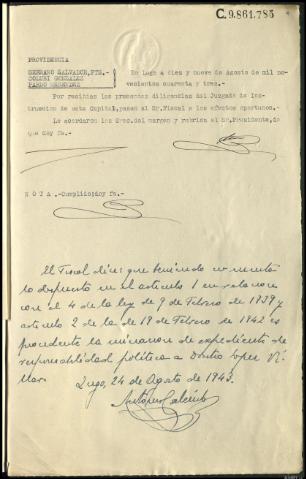 C.9.861.785
PROVIDENCIA
SERRANO SALVADOR, PTE.-
GONZALEZ
PARDO
En Lugo a diez y nueve de Agosto de mil no-
vecientos cuarenta y tres.-
Por recibidas las presentes diligencias del Juzgado de Ins-
trucción de esta Capital, pasen al Sr. Fiscal a los efectos oportunos.-
Lo acordaron los Sres. del margen y rubrica el Sr. Presidente, de
que doy fe.-
N O T A .-Cumplido; doy fe.-
El Fiscal dice: que teniendo en cuenta
lo dispuesto en el artículo 1 en relación
con el 4 de la ley de 9 de Febrero de 1939 y
artículo 2 de la de 19 de Febrero de 1942 es
procedente la incoacion de expediente de
responsabilidad política a Lopez Vi-
llar.
Lugo, 24 de Agosto de 1943.